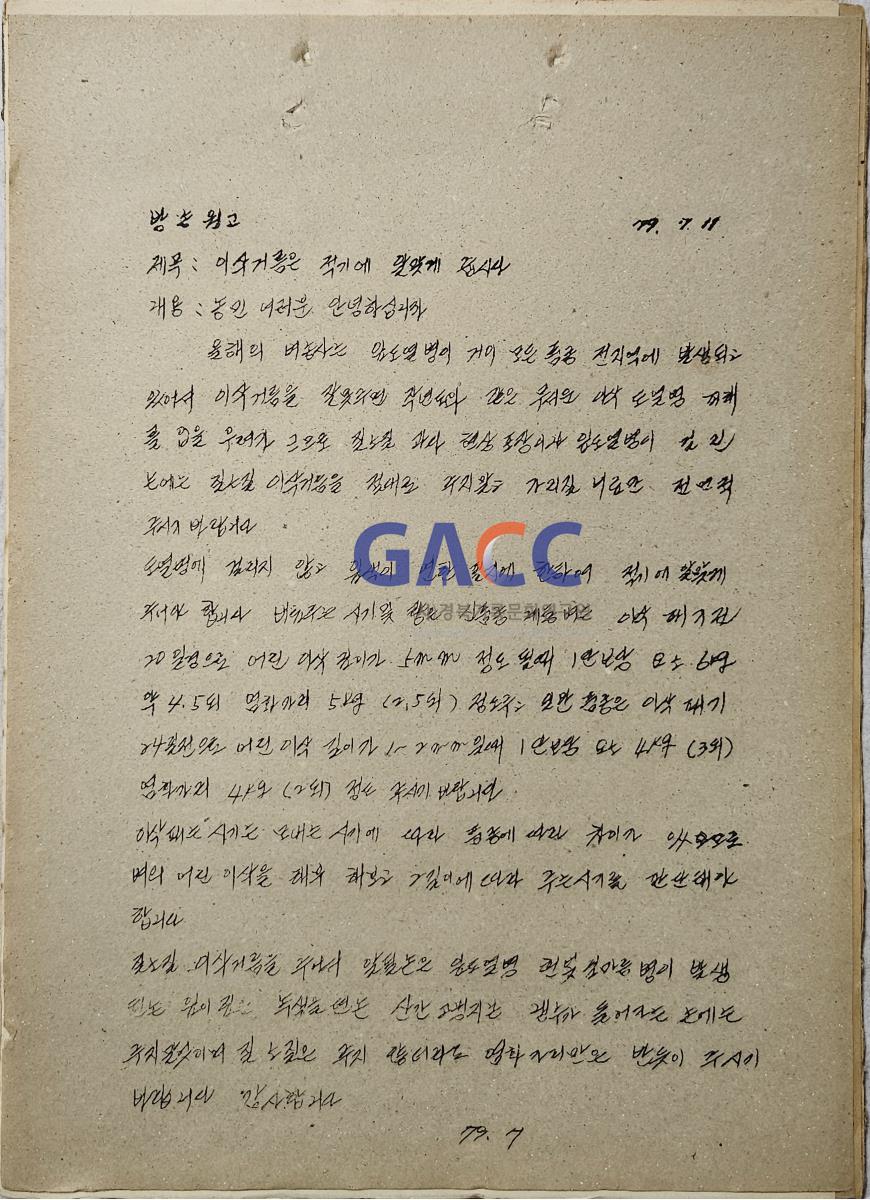 방송원고 79. 7. 11
제목 : 이삭거름은 적기에 알맞게 줍시다
내용 : 농민 여러분 안녕하십니까
올해의 벼농사는 잎도열병이 거의 모든 품종 전지역에 발생되고
있어서 이삭거름을 잘못주면 작년도와 같은 무서운 이삭 도열병 피해
를 입을 우려가 그으로 질소질 과다 현상 포장이나 잎도열병이 걸린
논에는 질소질 이삭거름을 절대로 주지말고 가리질 비료만 전면적
주시기 바랍니다
도열병에 걸리지 않고 변한 한하여 적기에 알맞게
주어야 합니다 비료주는 시기및 량은 신품종 계통벼는 이삭 패기전
20일경으로 어린 이삭 길이가 5mm 정도 될때 1단보당 요소 6kg
약 4.5되 염화가리 5kg (2.5되) 정도주고 일반품종은 이삭패기
24일전으로 어린 이삭 길이가 1~2mm일때 1단보당 요소 4kg (3되)
염화가리 4kg (2되) 정도 주시기 바랍니다
이삭패는 시기는 모내는 시기에 따라 품종에 따라 차이가 있으므로
벼의 어린 이삭을 해보고 그길이에 따라 주는시기를 판단해야
합니다
질소질 이삭거름을 주어서 안될논은 잎도열병 흰빛잎마름병이 발생
된논 잎이 짙은 녹색을 띤논 산간고냉지논 냉수가 들어가는 논에는
주지말것이며 질소질은 주지 않더라도 염화가리만은 반듯이 주시기
바랍니다 감사합니다
79. 7
GACC